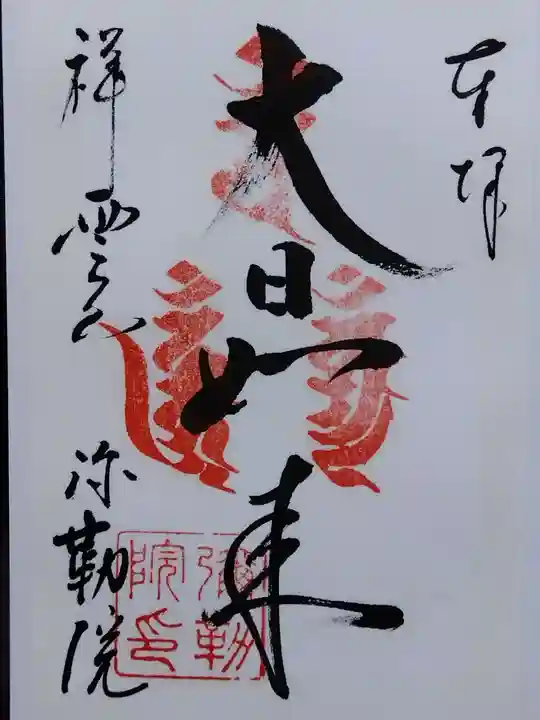 奉拝
大日如来
祥雲山
弥勒院
彌勒
院印